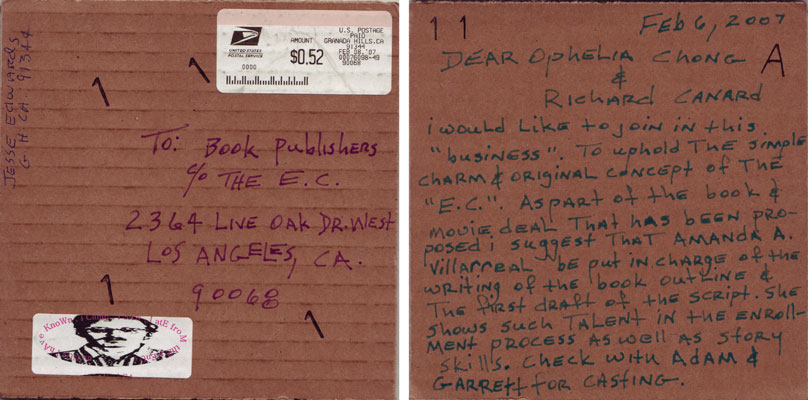 JESSE EDWARDS
G H CA. 91344
UNITED STATES
POSTAL SERVICE
0000
AMOUNT
$0.52
U.S. POSTAGE
PAID
GRANADA HILLS,CA
91344
FEB 08,'07
00076098-49
90068
To: Book Publishers
c/o THE E.C.
2364 LIVE OAK DR. WEST
LOS ANGELES, CA.
90068
KnoWn
LatE froM the
11
Feb 6, 2007
DEAR OpheliA CHONG
A
&
RICHARD CANARD
i would Like to join in this
"business". To uphold THE simple
CHARM & ORIGINAL CONCEPT OF THE
"E.C.". AS PART OF THE book &
MOVIE DEAL THAT HAS BEEN PRO-
POSED i suggEST THAT AMANDA A.
Villarreal be put in charge of the
writing of the book outline &
The first draft of the script. She
shows such TALENT in the ENROLL-
MENT PROCESS AS WELL AS STORY
SKILLS. Check with ADAM &
GARRETT for CASTING.